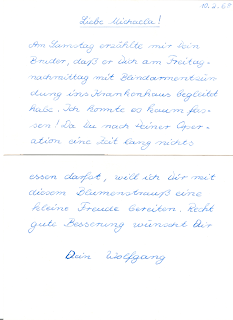 10.2.69
Liebe Michaela!
Am Samstag erzählte mir Dein
Bruder, daß er Dich am Freitag-
nachmittag mit Blinddarmentzün-
dung ins Krankenhaus begleitet
habe. Ich konnte es kaum fas-
sen! Da Du nach Deiner Oper-
ation eine Zeit lang nichts
essen darfst, will ich Dir mit
diesem Blumenstrauß eine
kleine Freude bereiten. Recht
gute Besserung wünscht Dir
Dein Wolfgang